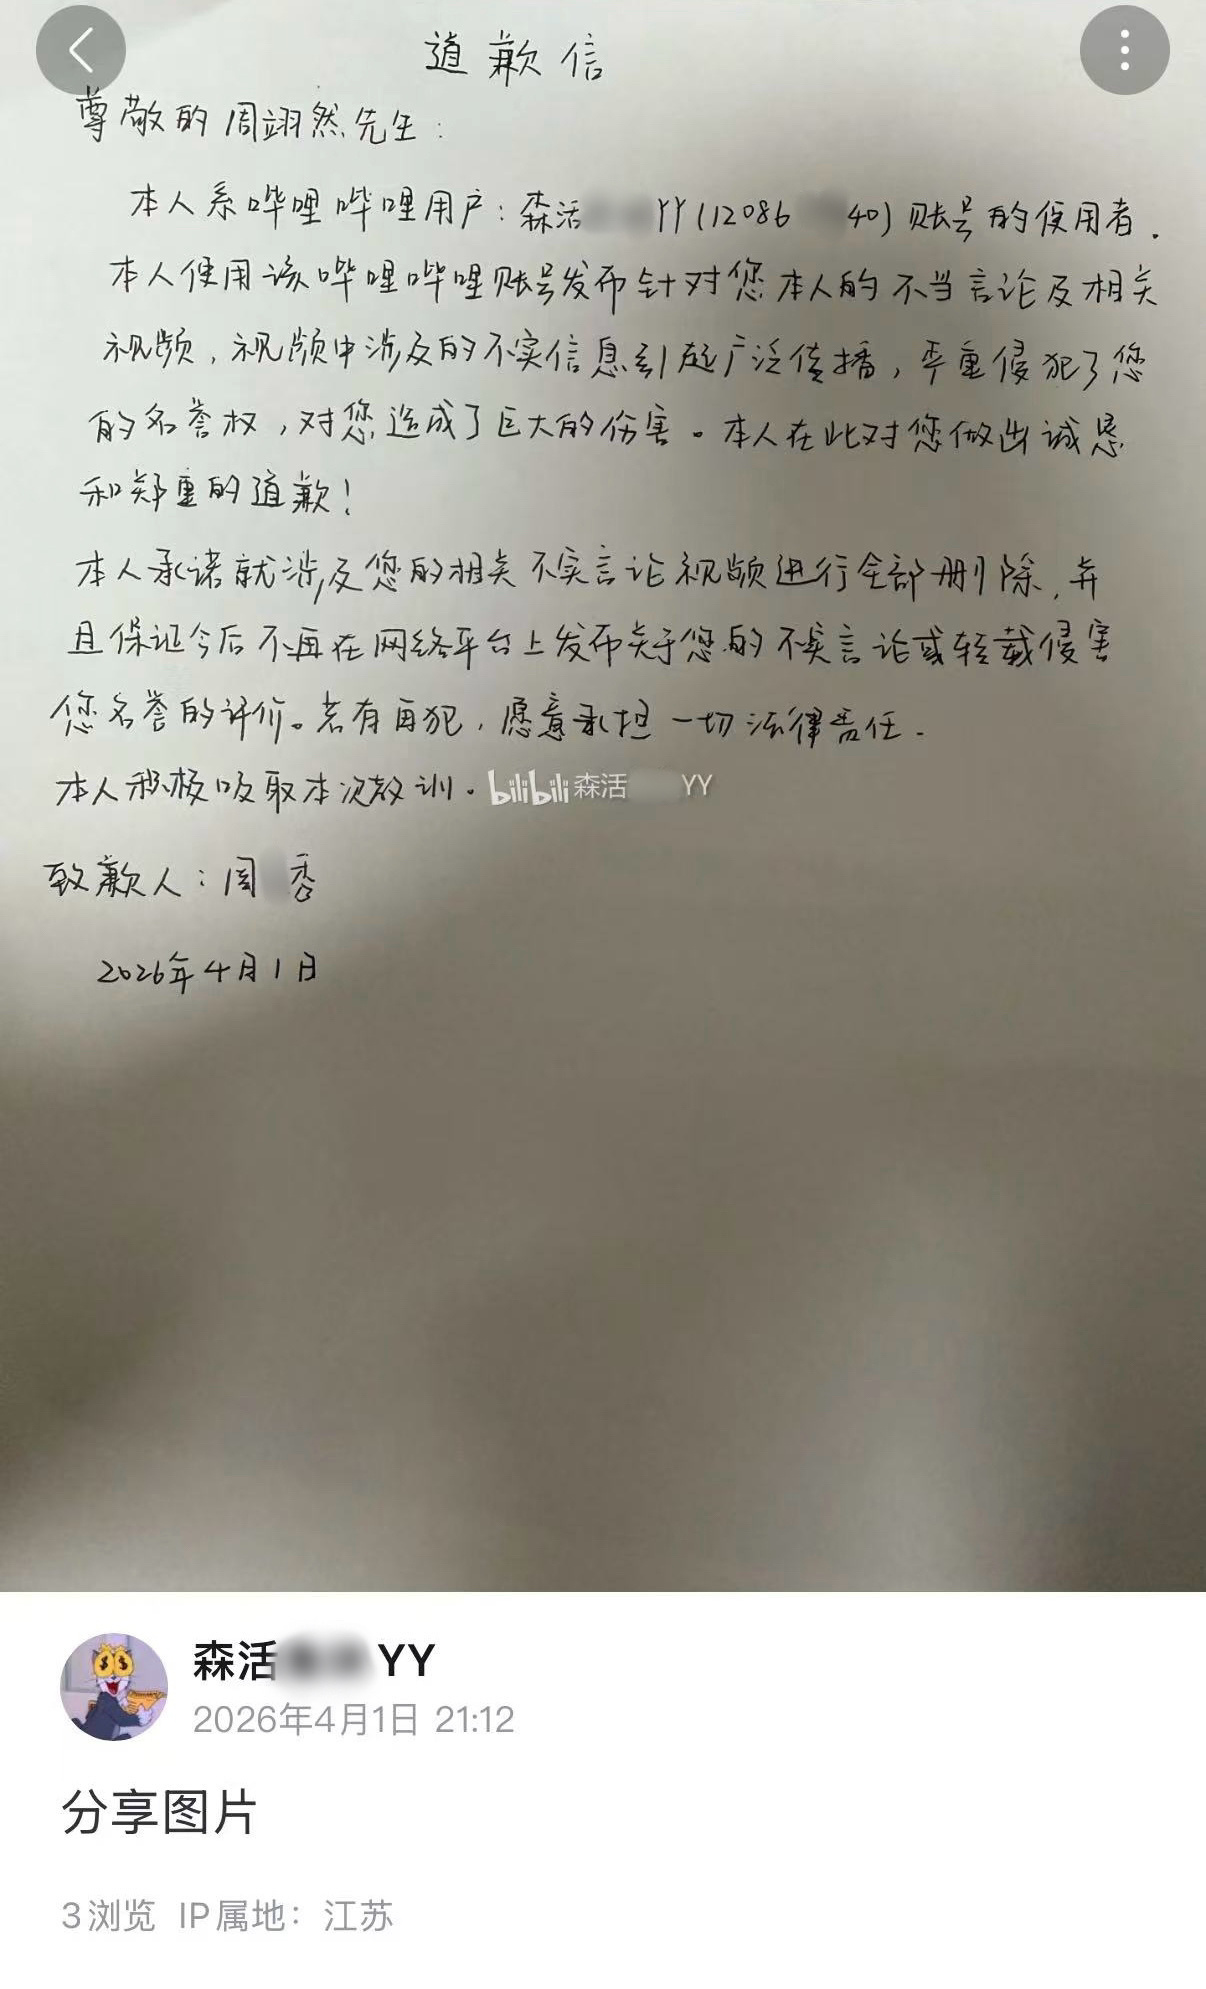 道歉信
尊敬的周翊然先生：
本人系哔哩哔哩用户：森活 YY(12086 40)账号的使用者.
本人使用该哔哩哔哩账号发布针对您本人的不当言论及相关
视频，视频中涉及的不实信息引起广泛传播，严重侵犯了您
的名誉权，对您造成了巨大的伤害。本人在此对您做出诚恳
和郑重的道歉！
本人承诺就涉及您的相关不实言论视频进行全部删除，并
且保证今后不再在网络平台上发布关于您的不实言论或转载侵害
您名誉的评价。若有再犯，愿意承担一切法律责任.
本人积极吸取本次教训。
bilibili 森活 YY
致歉人：周 香
2026年4月1日
森活 YY
2026年4月1日 21:12
分享图片
3浏览 IP属地：江苏